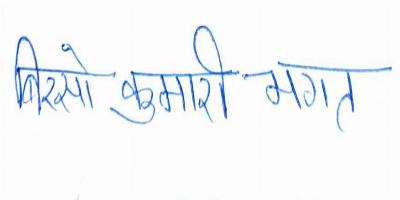 बिरसो कुमारी भगत